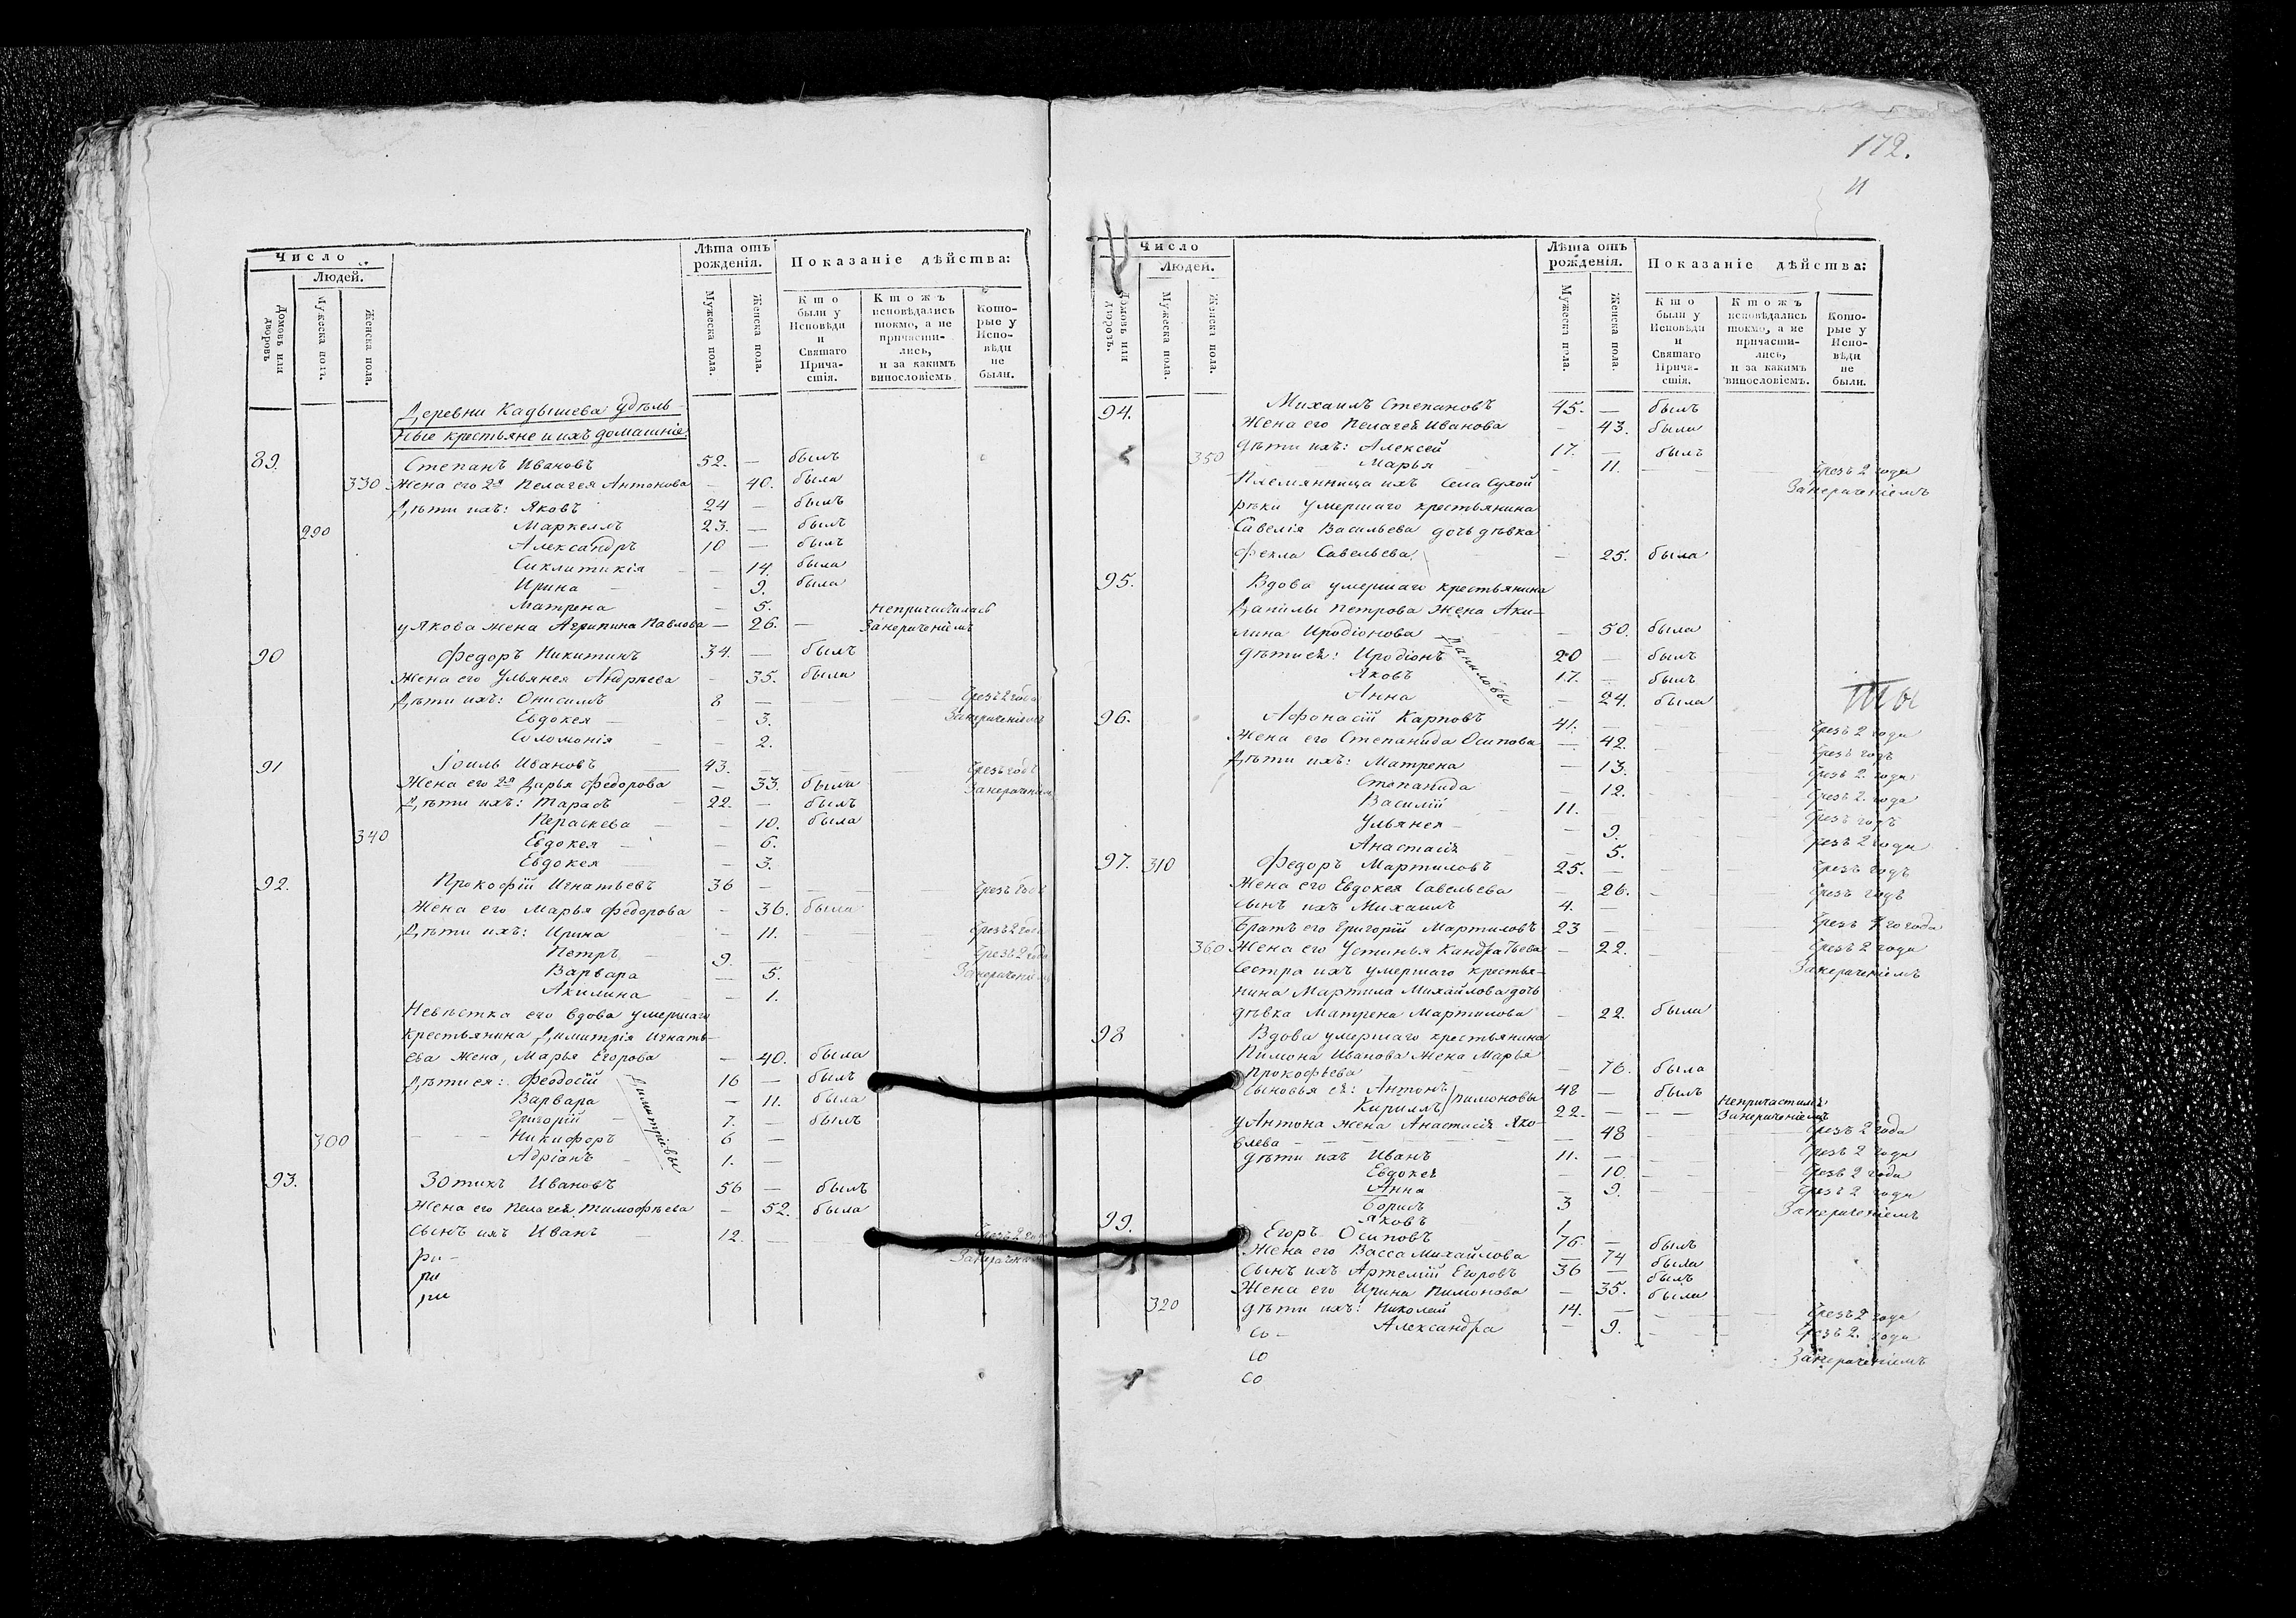 Число
Людей.
Домовъ или дворовъ
Мужеска пола.
Женска пола.
Лѣта отъ рожденія.
Мужеска пола.
Женска пола.
Показаніе дѣйства:
Кто были у Исповѣди и Святаго Причастія.
Ктожъ исповѣдались токмо, а не причастились, и за какимъ винословіемъ
Которые у Исповѣди не были.
Деревни Кадышева удѣль-
ные крестьяне и ихъ домашніе
89. Степанъ Ивановъ 52. — былъ
330 Жена его 2я Пелагея Антонова — 40. была
Дѣти ихъ: Яковъ 24 — былъ
290 Маркеллъ 23. — былъ
Александръ 10 — былъ
Сиклитикія — 14. была
Ирина — 9. была
Матрена — 5. непричастилась
у Якова жена Агрипина Павлова — 26. — Занеричениемъ
90 Федоръ Никитинъ 34. — былъ
Жена его Ульянея Андрѣева — 35. была
Дѣти ихъ: Онисимъ 8 — Чрезъ 2 года
Евдокея — 3. Занерачениемъ
Соломонія — 2.
91 Іоиль Ивановъ 43. — Чрезъ годъ
Жена его 2я Дарья Федорова — 33. была Занерачением
Дѣти ихъ: Тарасъ 22. — былъ
Параскева — 10. была
340 Евдокея — 6.
Евдокея — 3.
92. Прокофій Игнатьевъ 36 — Чрезъ годъ
Жена его Марья Федорова — 36. была
Дѣти ихъ: Ирина — 11. Чрезъ 2 года
Петръ 9. — Чрезъ 2 года
Варвара — 5. Занерачением
Акилина — 1.
Невѣстка его вдова умершаго
крестьянина Димитрія Игнать-
ева жена, Марья Егорова — 40. была
Дѣти ея: Феодосій 16 — былъ
Варвара — 11. была
Григорій 7. — былъ
300 Никифоръ 6 —
Адріанъ 1. —
Димитріевы
93. Зотикъ Ивановъ 56 — былъ
Жена его Пелагея Тимофѣева — 52. была
Сынъ ихъ Иванъ 12. — Чрезъ 2 года
ри —
ри
ри
172.
Число
Людей.
Домовъ или дворовъ.
Мужеска пола.
Женска пола.
Лѣта отъ рожденія.
Мужеска пола.
Женска пола.
Показаніе дѣйства:
Кто были у Исповѣди и Святаго Причастія.
Ктожъ исповѣдались токмо, а не причастились, и за какимъ винословіемъ.
Которые у Исповѣди не были.
94. Михаилъ Степановъ 45. — былъ
Жена его Пелагея Иванова — 43. была
350 дѣти ихъ: Алексей 17. — былъ
Марья — 11. Чрезъ 2 года
Племянница ихъ Села Сухой Занерачениемъ
рѣки умершаго крестьянина
Савелія Васильева дочь дѣвка
Фекла Савельева — 25. была
95. Вдова умершаго крестьянина
Данилы Петрова Жена Аки-
лина Иродіонова — 50. была
дѣти ея: Иродіонъ 20 — былъ
Яковъ 17. — былъ
Анна — 24. была
Даниловы
96. Афонасій Карповъ 41. — Чрезъ 2 года
Жена его Степанида Осипова — 42. Чрезъ годъ
Дѣти ихъ: Матрена — 13. Чрезъ 2 года
Степанида — 12. Чрезъ 2 года
Василій 11. — Чрезъ годъ
Ульянея — 9. Чрезъ 2 года
Анастасія — 5.
97. 310 Федоръ Мартиловъ 25. — Чрезъ годъ
Жена его Евдокея Савельева — 26. Чрезъ годъ
сынъ ихъ Михаилъ 4. —
Братъ его Григорій Мартиловъ 23 — Чрезъ года
360 Жена его Устинья Кандратьева — 22. Чрезъ 2 года
Сестра ихъ умершаго крестья- Занерачениемъ
нина Мартила Михайлова дочь
дѣвка Матрена Мартилова — 22. была
98 Вдова умершаго крестьянина
Пимона Иванова жена Марья
Прокофьева — 76. была
Сыновья ея: Антонъ Пимоновы 48 — былъ
Кирилъ 22. — Непричастилъ Занерачениемъ
у Антона жена Анастасія Яко-
влева — 48 Чрезъ 2 года
дѣти ихъ Иванъ 11. — Чрезъ 2 года
Евдокея — 10. Чрезъ 2 года
Анна — 9. Чрезъ 2 года
Борисъ 3 Занерачениемъ
Яковъ 1.
99. Егоръ Осиповъ 76. — былъ
Жена его Васса Михайлова — 74 была
Сынъ ихъ Артемій Егоровъ 36 — былъ
Жена его Ирина Пимонова — 35. была
320 дѣти ихъ: Николай 14. — Чрезъ 2 года
Александра — 9. Чрезъ 2. года
Занерачениемъ
со —
со
со